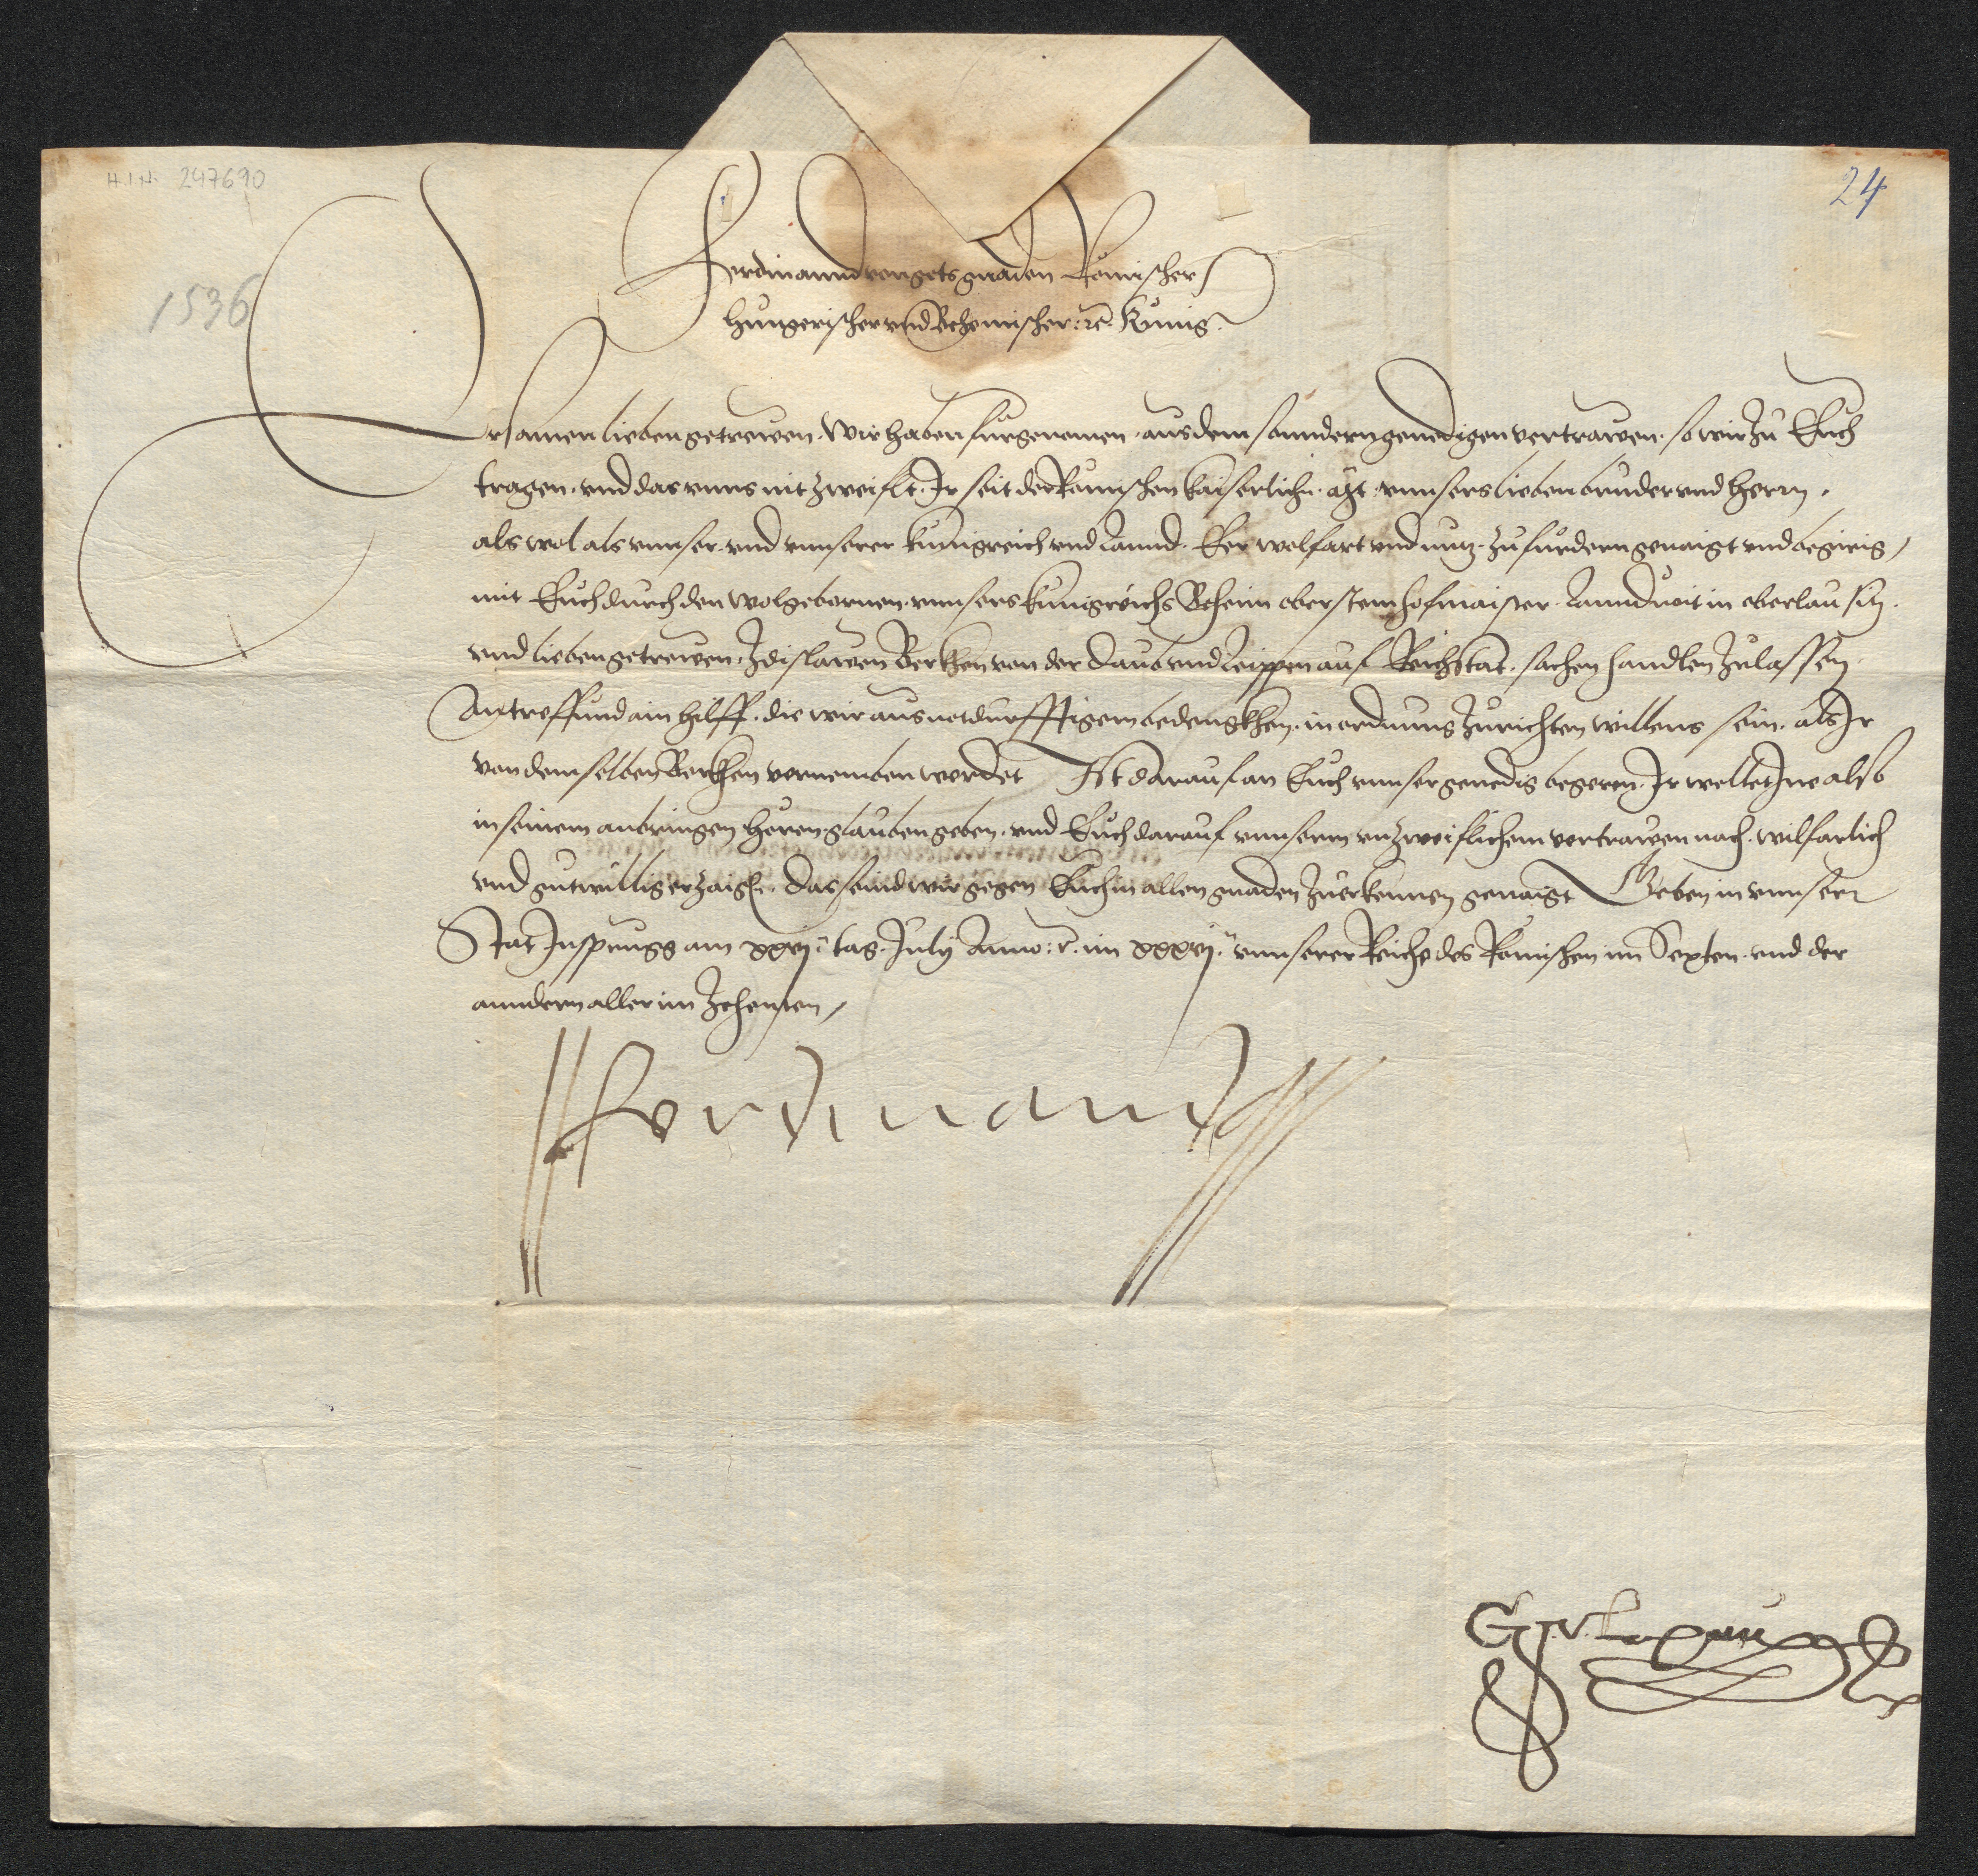 H.I.N. 247690
24
1536
Ferdinannd von gots gnaden Römischer
Hungerischer vnd Behemischer: rc. Kunig.
Ersamen lieben getrewen. Wir haben furgenomen. aus dem sonndern genedigen vertrawen. so wir zu Euch
tragen. vnd das vnns nit zweiflt. Ir seit der Römischen kaiserlichn. Mt. vnnsers lieben bruder vnd herrn.
als wol als vnnser. vnd vnnserer kunigreich vnd Lannd. Eer wolfart vnd nutz. zu furdern genaigt vnd begirig,
mit Euch durch den wolgebornen. vnnsers kunigreichs Beheim obersten hofmaister. Lanndvoit in oberlausitz.
vnd lieben getrewen. Zdislawen Berkhen von der Daub vnd Leippen auf Reichstat. sachen handlen zulassen.
Antreffund ain hilff. die wir aus notdurfftigem bedengkhen. in ordnung zurichten willens sein. als Ir
von demselben Berkhen vernemben werdet Ist darauf an Euch vnnser genedig begeren. Ir wellet Ine also
in seinem anbringen horen glauben geben. vnd Euch darauf vnnserm vnzweiflichem vertrawen nach. wilfarlich
vnd gutwillig erzaign. Das seind wir gegen Euch in allen gnaden zuerkennen genaigt Geben in vnnser
Stat Insprugg am xxvj. tag. July Anno: rc. im xxxvj. vnnserer Reiche des Römischen im Sexten. vnd der
anndern aller im Zehenten,
Ferdinand